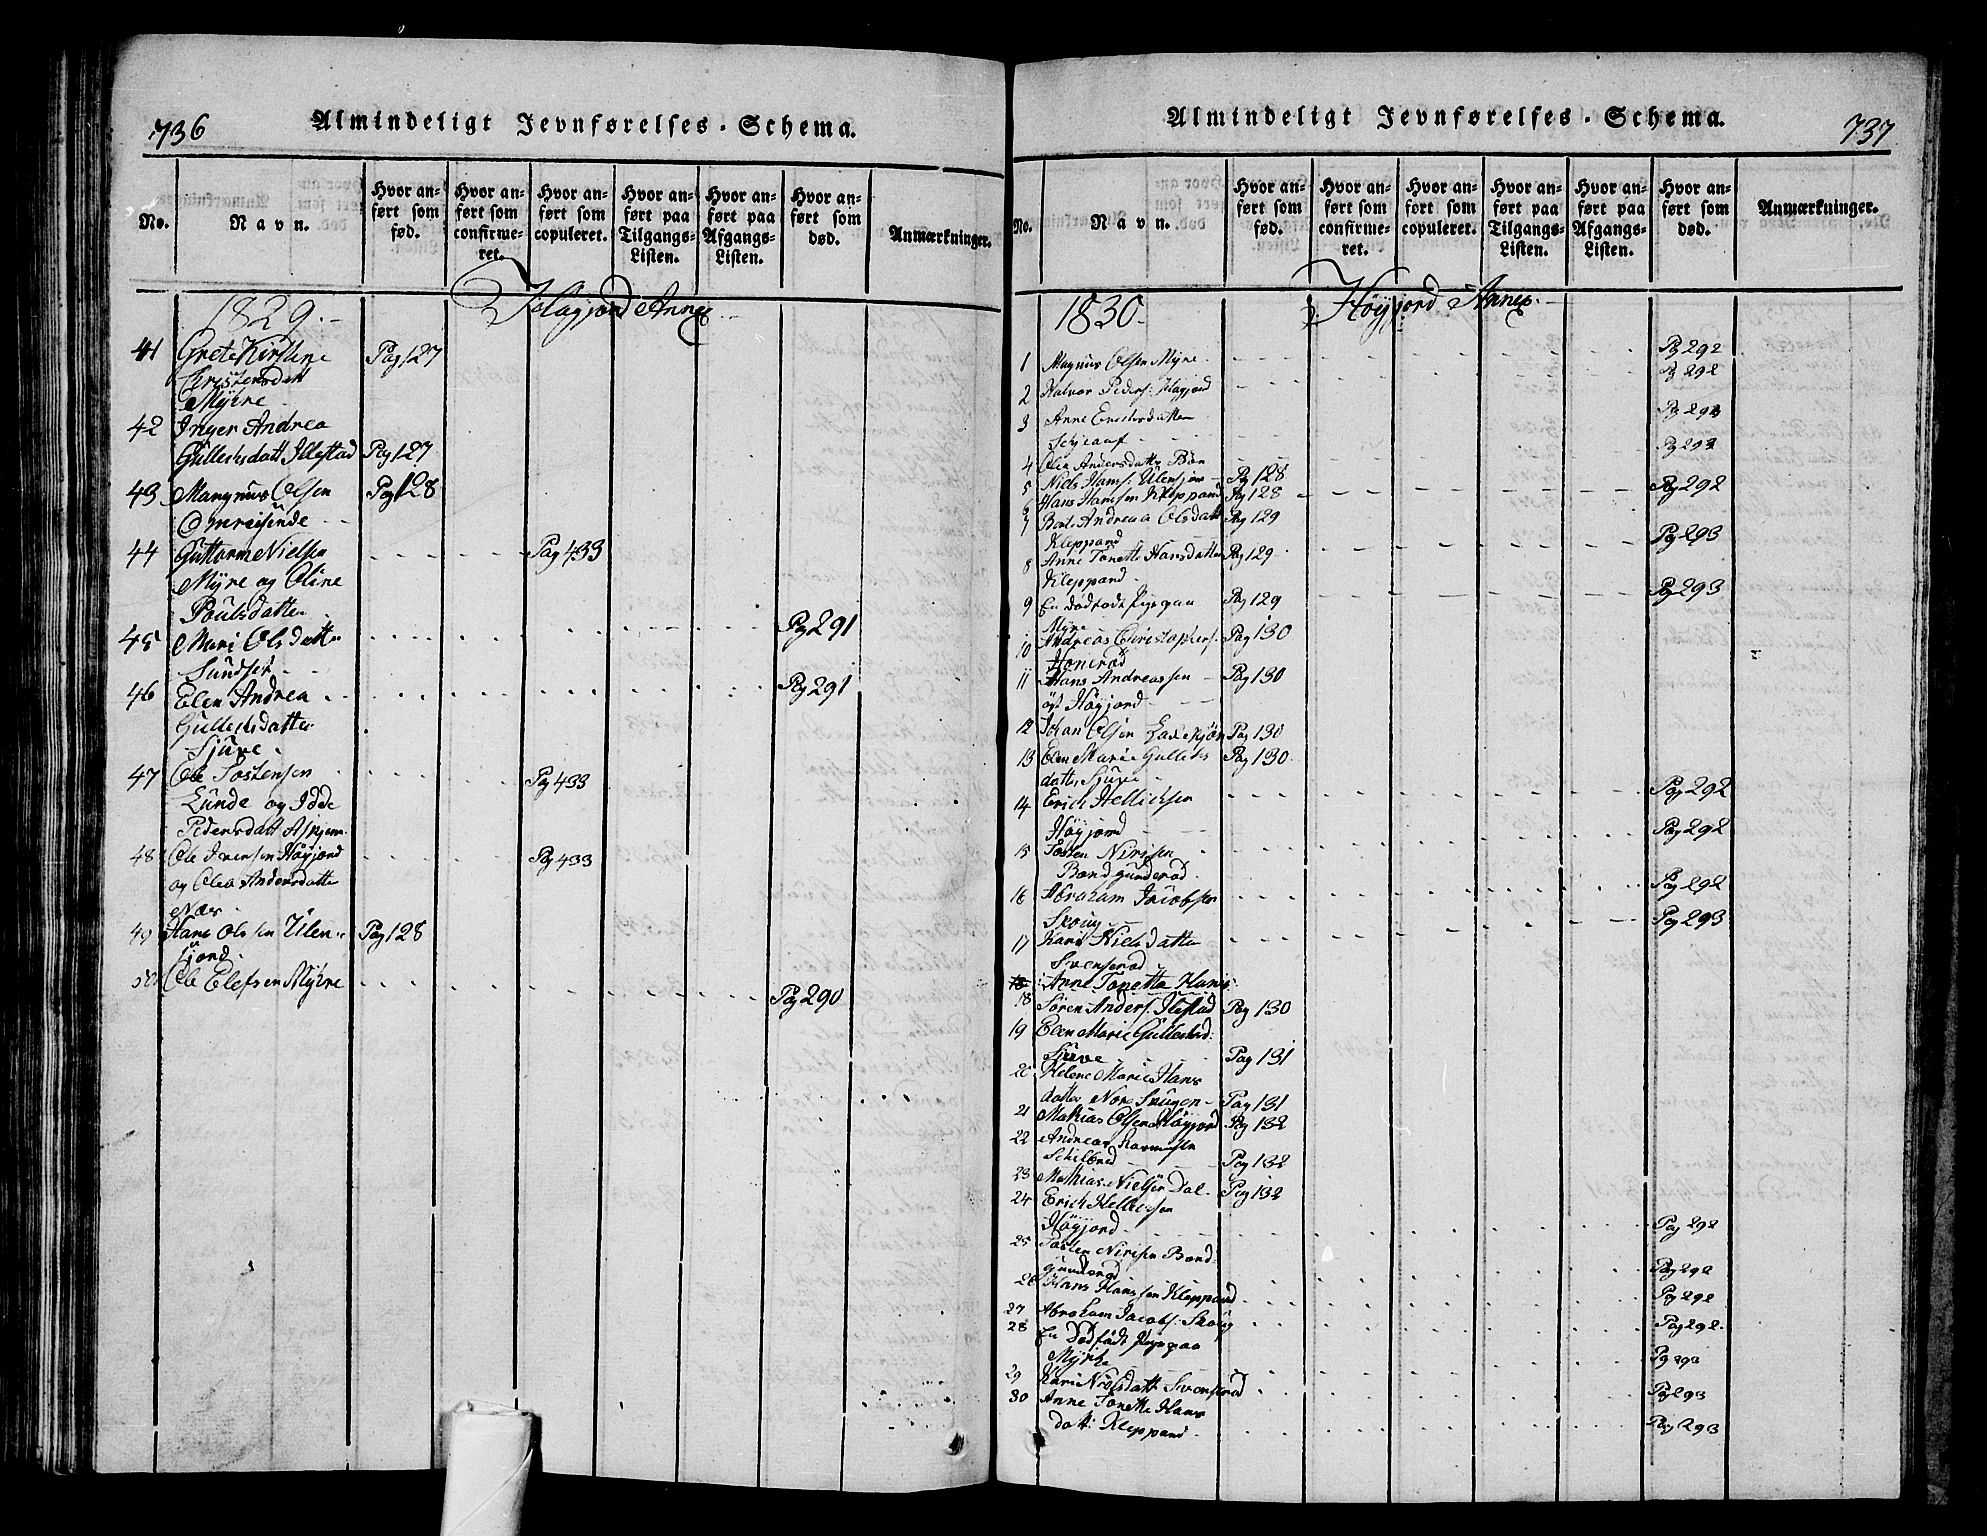 736
Almindeligt Jevnførelses-Schema.
No.
Navn.
Hvor anført som fød.
Hvor anført som confirmeret.
Hvor anført som copuleret.
Hvor anført paa Tilgangs-Listen.
Hvor anført paa Afgangs-Listen.
Hvor anført som død.
Anmærkninger.
1829. Høyjord Annex
41 Grete Kirstine Pag 127
Christensdatt
Myhre
42 Inger Andrea
Gullichsdatt Illestad Pag 127
43 Mangnus Olsen Pag 128
Omreisende
44 Guttorm Nielsen Pag 433
Myre og Oline
Poulsdatter
45 Mari Olsdatter Pag 291
Sundset
46 Elen Andrea Pag 291
Gullichsdatter
Sjuve
47 Ole Tostensen Pag 433
Lunde og Idde
Pedersdatt Askjem
48 Ole Iversen Høyjord Pag 433
og Olea Andersdatter
Næs
49 Hans Olssen Ulen- Pag 128
fjord
50 Ole Elefsen Myhre Pag 290
737
Almindeligt Jevnførelses-Schema.
No.
Navn.
Hvor anført som fød.
Hvor anført som confirmeret.
Hvor anført som copuleret.
Hvor anført paa Tilgangs-Listen.
Hvor anført paa Afgangs-Listen.
Hvor anført som død.
Anmærkninger.
1830. Høyjord Annex
1 Magnus Olsen Myre Pag 292
2 Halvor Peders: Høgjord Pag 292
3 Anne Erichsdatter Pag 293
4 Olea Andersdatter Pag 293
5 Niels Hans: Ulenfjor Pag 128
6 Hans Hanssen Kleppand Pag 128 Pag 292
7 Andrea Olsdatt Pag 129
Kleppand Pag 293
8 Anne Tonette Hansdatter Pag 129
Kleppand Pag 293
9 En dødfødt Pige paa Pag 129
Myre
10 Andreas Christophers: Pag 130
Honerød
11 Hans Andreassen Pag 130
øst Høyjord
12 Johan Olsen Ladekjøn Pag 130
13 Elen Marie Gullichs Pag 130
datter Sjuve
14 Erich Hellichsen Pag 292
Høyjord Pag 292
15 Tosten Nirisen
Bondgunderød Pag 292
16 Abraham Jacobsen
Skoug Pag 293
17 Kari Nielsdatter
Svenserød
Anne Tonetta Hans:
18 Søren Anders: Illestad Pag 130
19 Elen Marie Gullichsd:
Sjuve Pag 131
20 Helene Marie Hans
datter Nore Skugen Pag 131
21 Mathias Olsen Høyjord Pag 132
22 Andreas Rasmussen
Pag 132
23 Mathias Nielsen Dal Pag 132
24 Erich Hellichsen
Høyjord Pag 292
25 Tosten Nirisen Bond
gunderød Pag 292
26 Hans Hanssen Kleppand Pag 292
27 Abraham Jacobs: Skoug Pag 292
28 En Dødfødt Pige paa
Myhre Pag 292
29 Kari Nielsdatt Svenserød Pag 293
30 Anne Tonette Hans
datt: Kleppand Pag 293